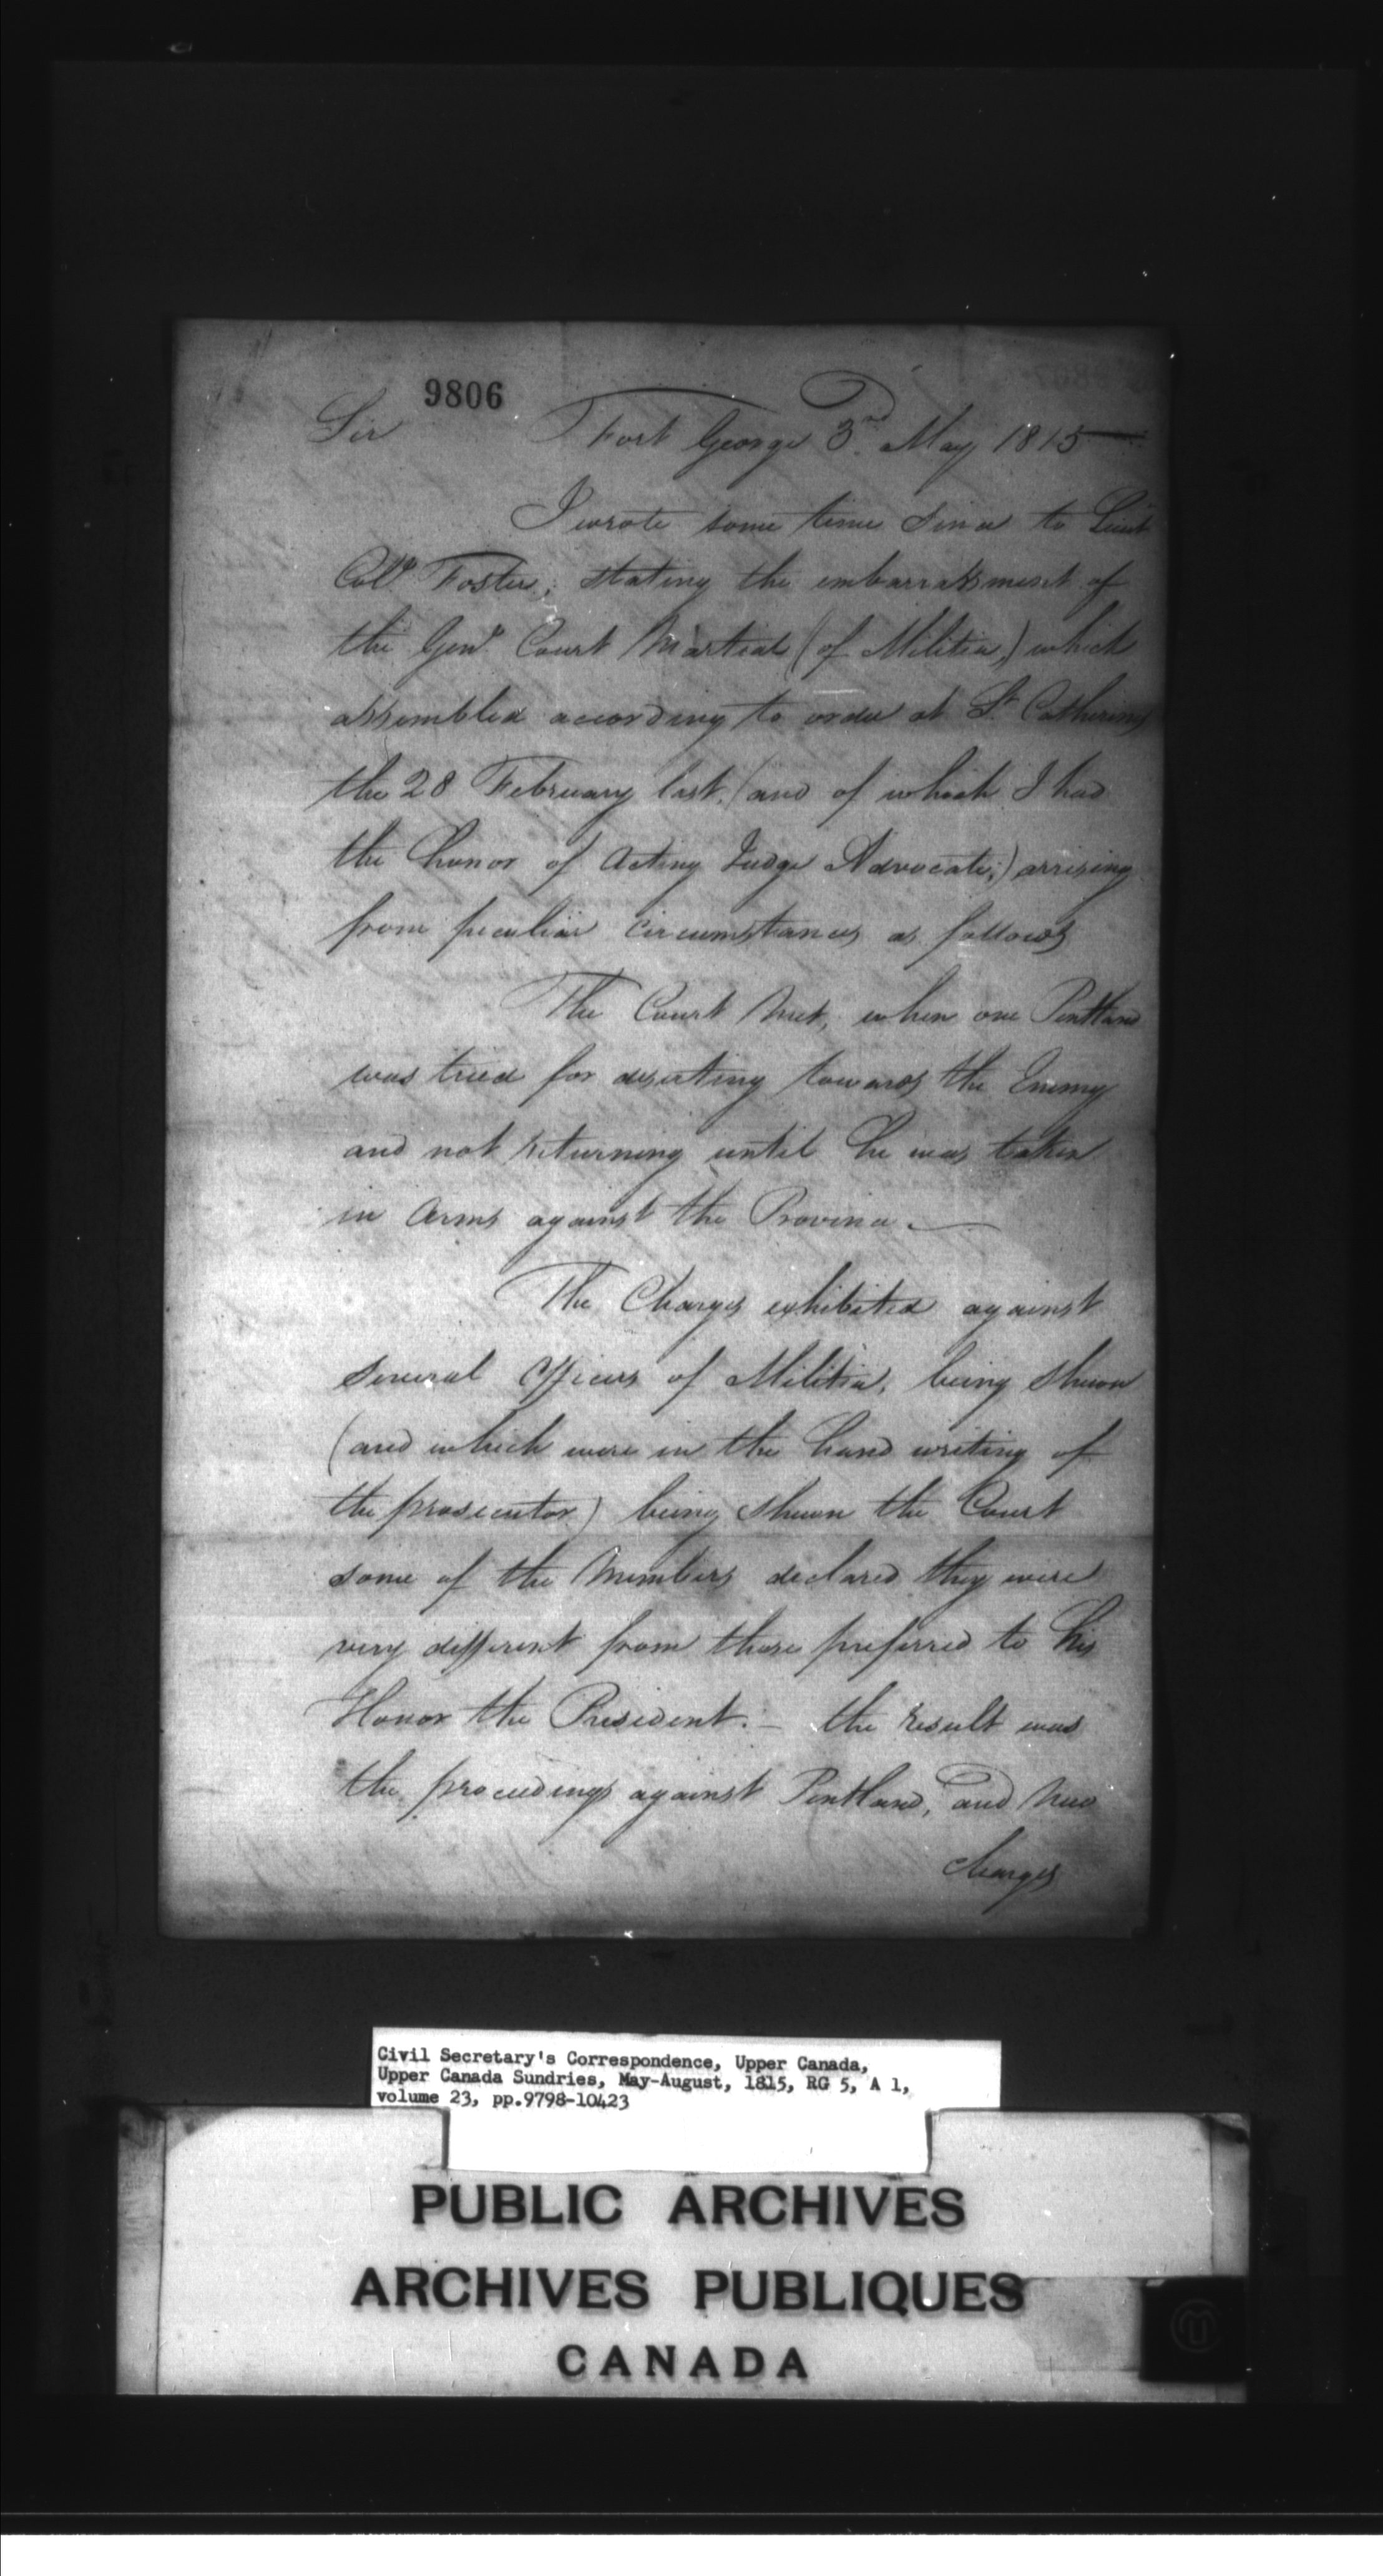 9806
Sir Fort George 3rd May 1815
I wrote some time Since to Lieut
Coll. Foster, stating the embarrassment of
the Genl Court Martial (of Militia,) which
assembled according to order at St Catherines
the 28 February last, (and of which I had
the honor of Acting Judge Advocate,) arrising
from peculiar circumstances as follows
The Court Met, when one Pentland
was tried for deserting towards the Enemy
and not returning until he was taken
in Arms against the Province.
The Charges exhibited against
several Officers of Militia, being shewn
(and which were in the hand writing of
the prosecutor) being shewn the Court
some of the Members declared they were
very different from those preferred to his
Honor the President. - the result was
the proceedings against Pentland, and New
Charges
Civil Secretary's Correspondence, Upper Canada,
Upper Canada Sundries, May-August, 1815, RG 5, A 1,
volume 23, pp.9798-10423
PUBLIC ARCHIVES
ARCHIVES PUBLIQUES
CANADA